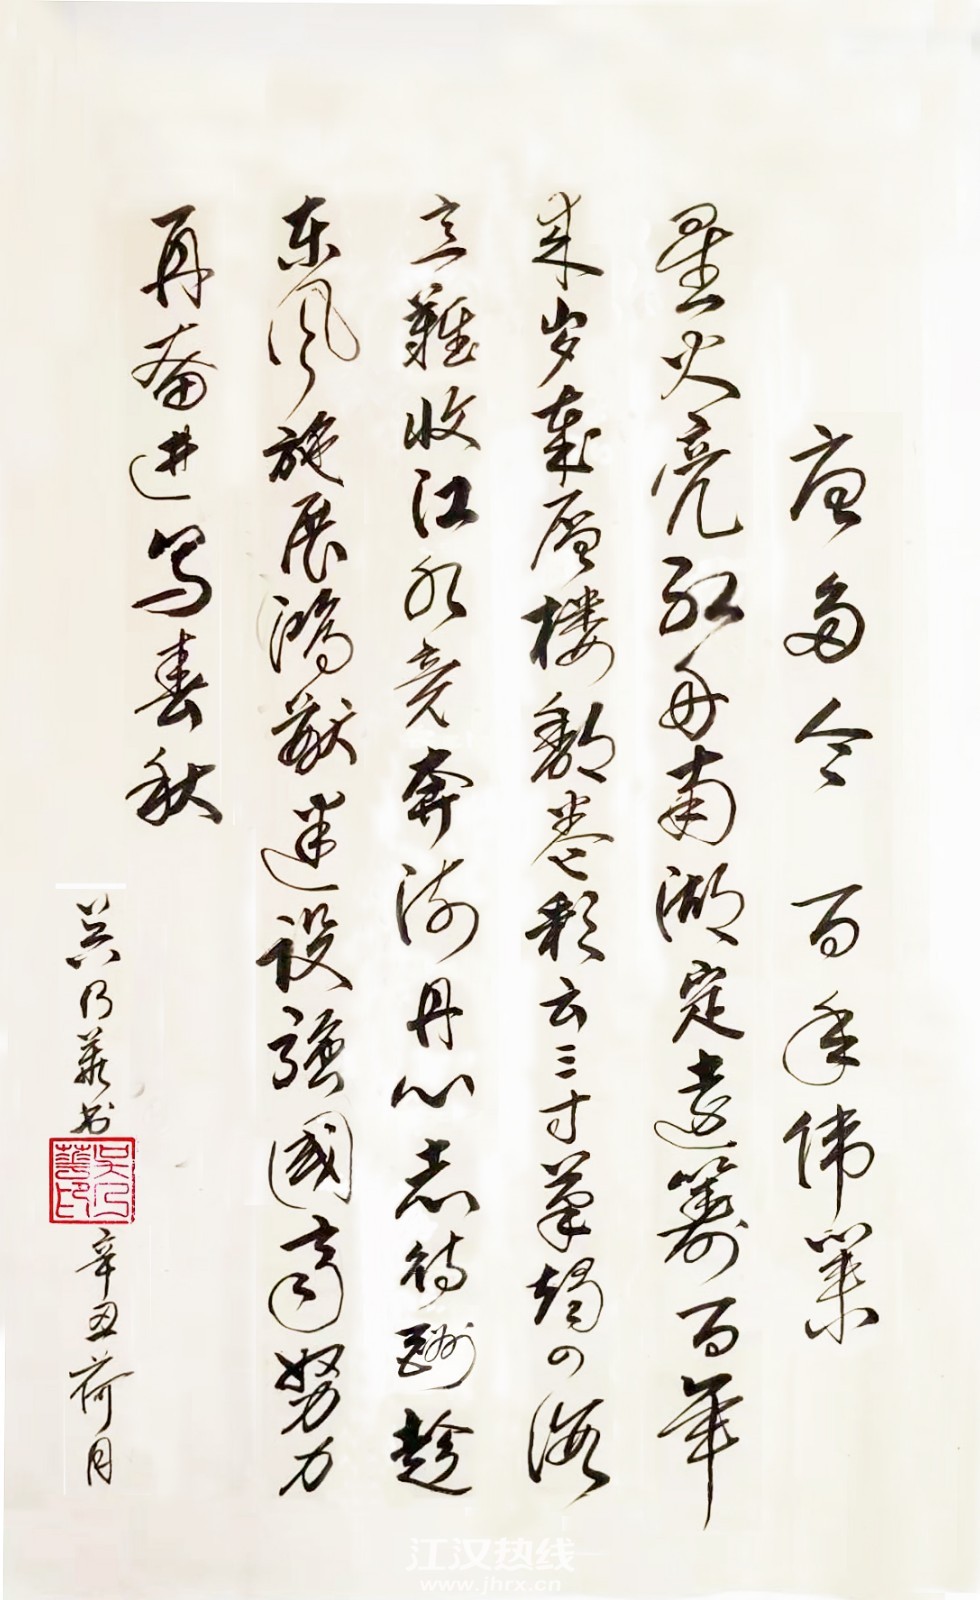 唐多令 百年伟業
星火亮红舟南湖定遠籌百年
来岁歲层楼翻卷彩云三寸筆 海
立難收江水竞奔流丹心志待酬趁
东风施展鸿猷建设强國齐努力
再奋进写春秋
吴乃華书
吴乃華印
辛丑荷月
江汉热线
www.jhrx.cn